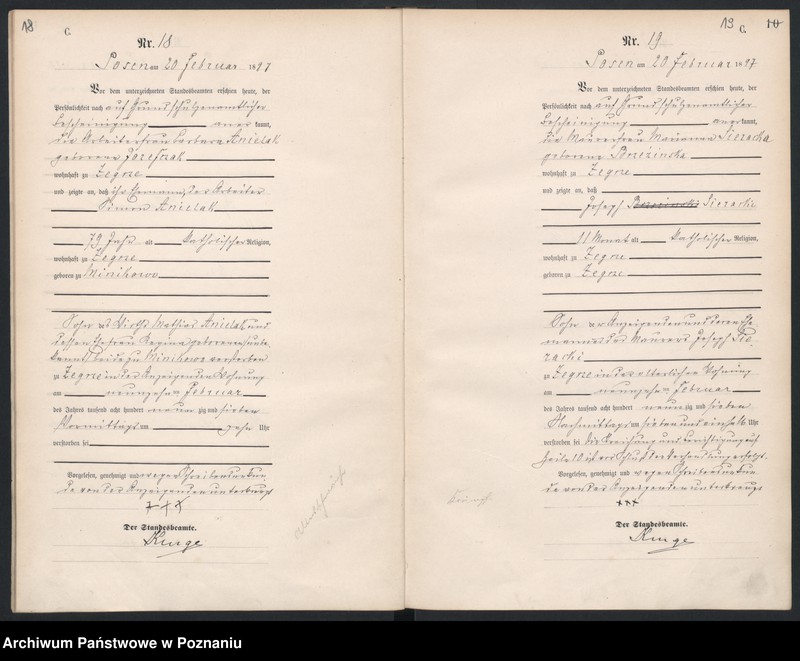 18
C.
Nr. 18
Posen am 20 Februar 1897
Vor dem unterzeichneten Standesbeamten erschien heute, der
Persönlichkeit nach auf Grund schutzamtlicher
Bescheinigung anerkannt,
die Arbeiterfrau Barbara Anielak
geborene Józefczak
wohnhaft zu Zegrze
und zeigte an, daß ihr Ehemann, der Arbeiter
Simon Anielak
79 Jahr alt katholischer Religion,
wohnhaft zu Zegrze
geboren zu Minikowo
Sohn des Wirths Mathias Anielak und
dessen Ehefrau Regina geborene unbe-
kannt, beide zu Minikowo verstorben
zu Zegrze in des Anzeigenden Wohnung
am neunzehn Februar
des Jahres tausend acht hundert neunzig und sieben
Vormittags um zehn Uhr
verstorben sei
Vorgelesen, genehmigt und wegen Schreibensunkun-
de von der Anzeigenden unterkreuzt
+++
Der Standesbeamte.
Runge
19
C.
10
Nr. 19
Posen am 20 Februar 1897
Vor dem unterzeichneten Standesbeamten erschien heute, der
Persönlichkeit nach auf Grund schutzamtlicher
Bescheinigung anerkannt,
die Maurerfrau Marianna Sieracka
geborene
wohnhaft zu Zegrze
und zeigte an, daß
Joseph Sieracki
11 Monat alt katholischer Religion,
wohnhaft zu Zegrze
geboren zu Zegrze
Sohn der Anzeigenden und deren Ehe-
mannes des Maurers Joseph Sie-
racki
zu Zegrze in der elterlichen Wohnung
am neunzehn Februar
des Jahres tausend acht hundert neunzig und sieben
Nachmittags um sieben und einhalb Uhr
verstorben sei. Die Streichung und Berichtigung auf
Zeile 10 über Schuldstrich
Vorgelesen, genehmigt und wegen Schreibensunkun-
de von der Anzeigenden unterkreuzt
+++
Der Standesbeamte.
Runge
Archiwum Państwowe w Poznaniu